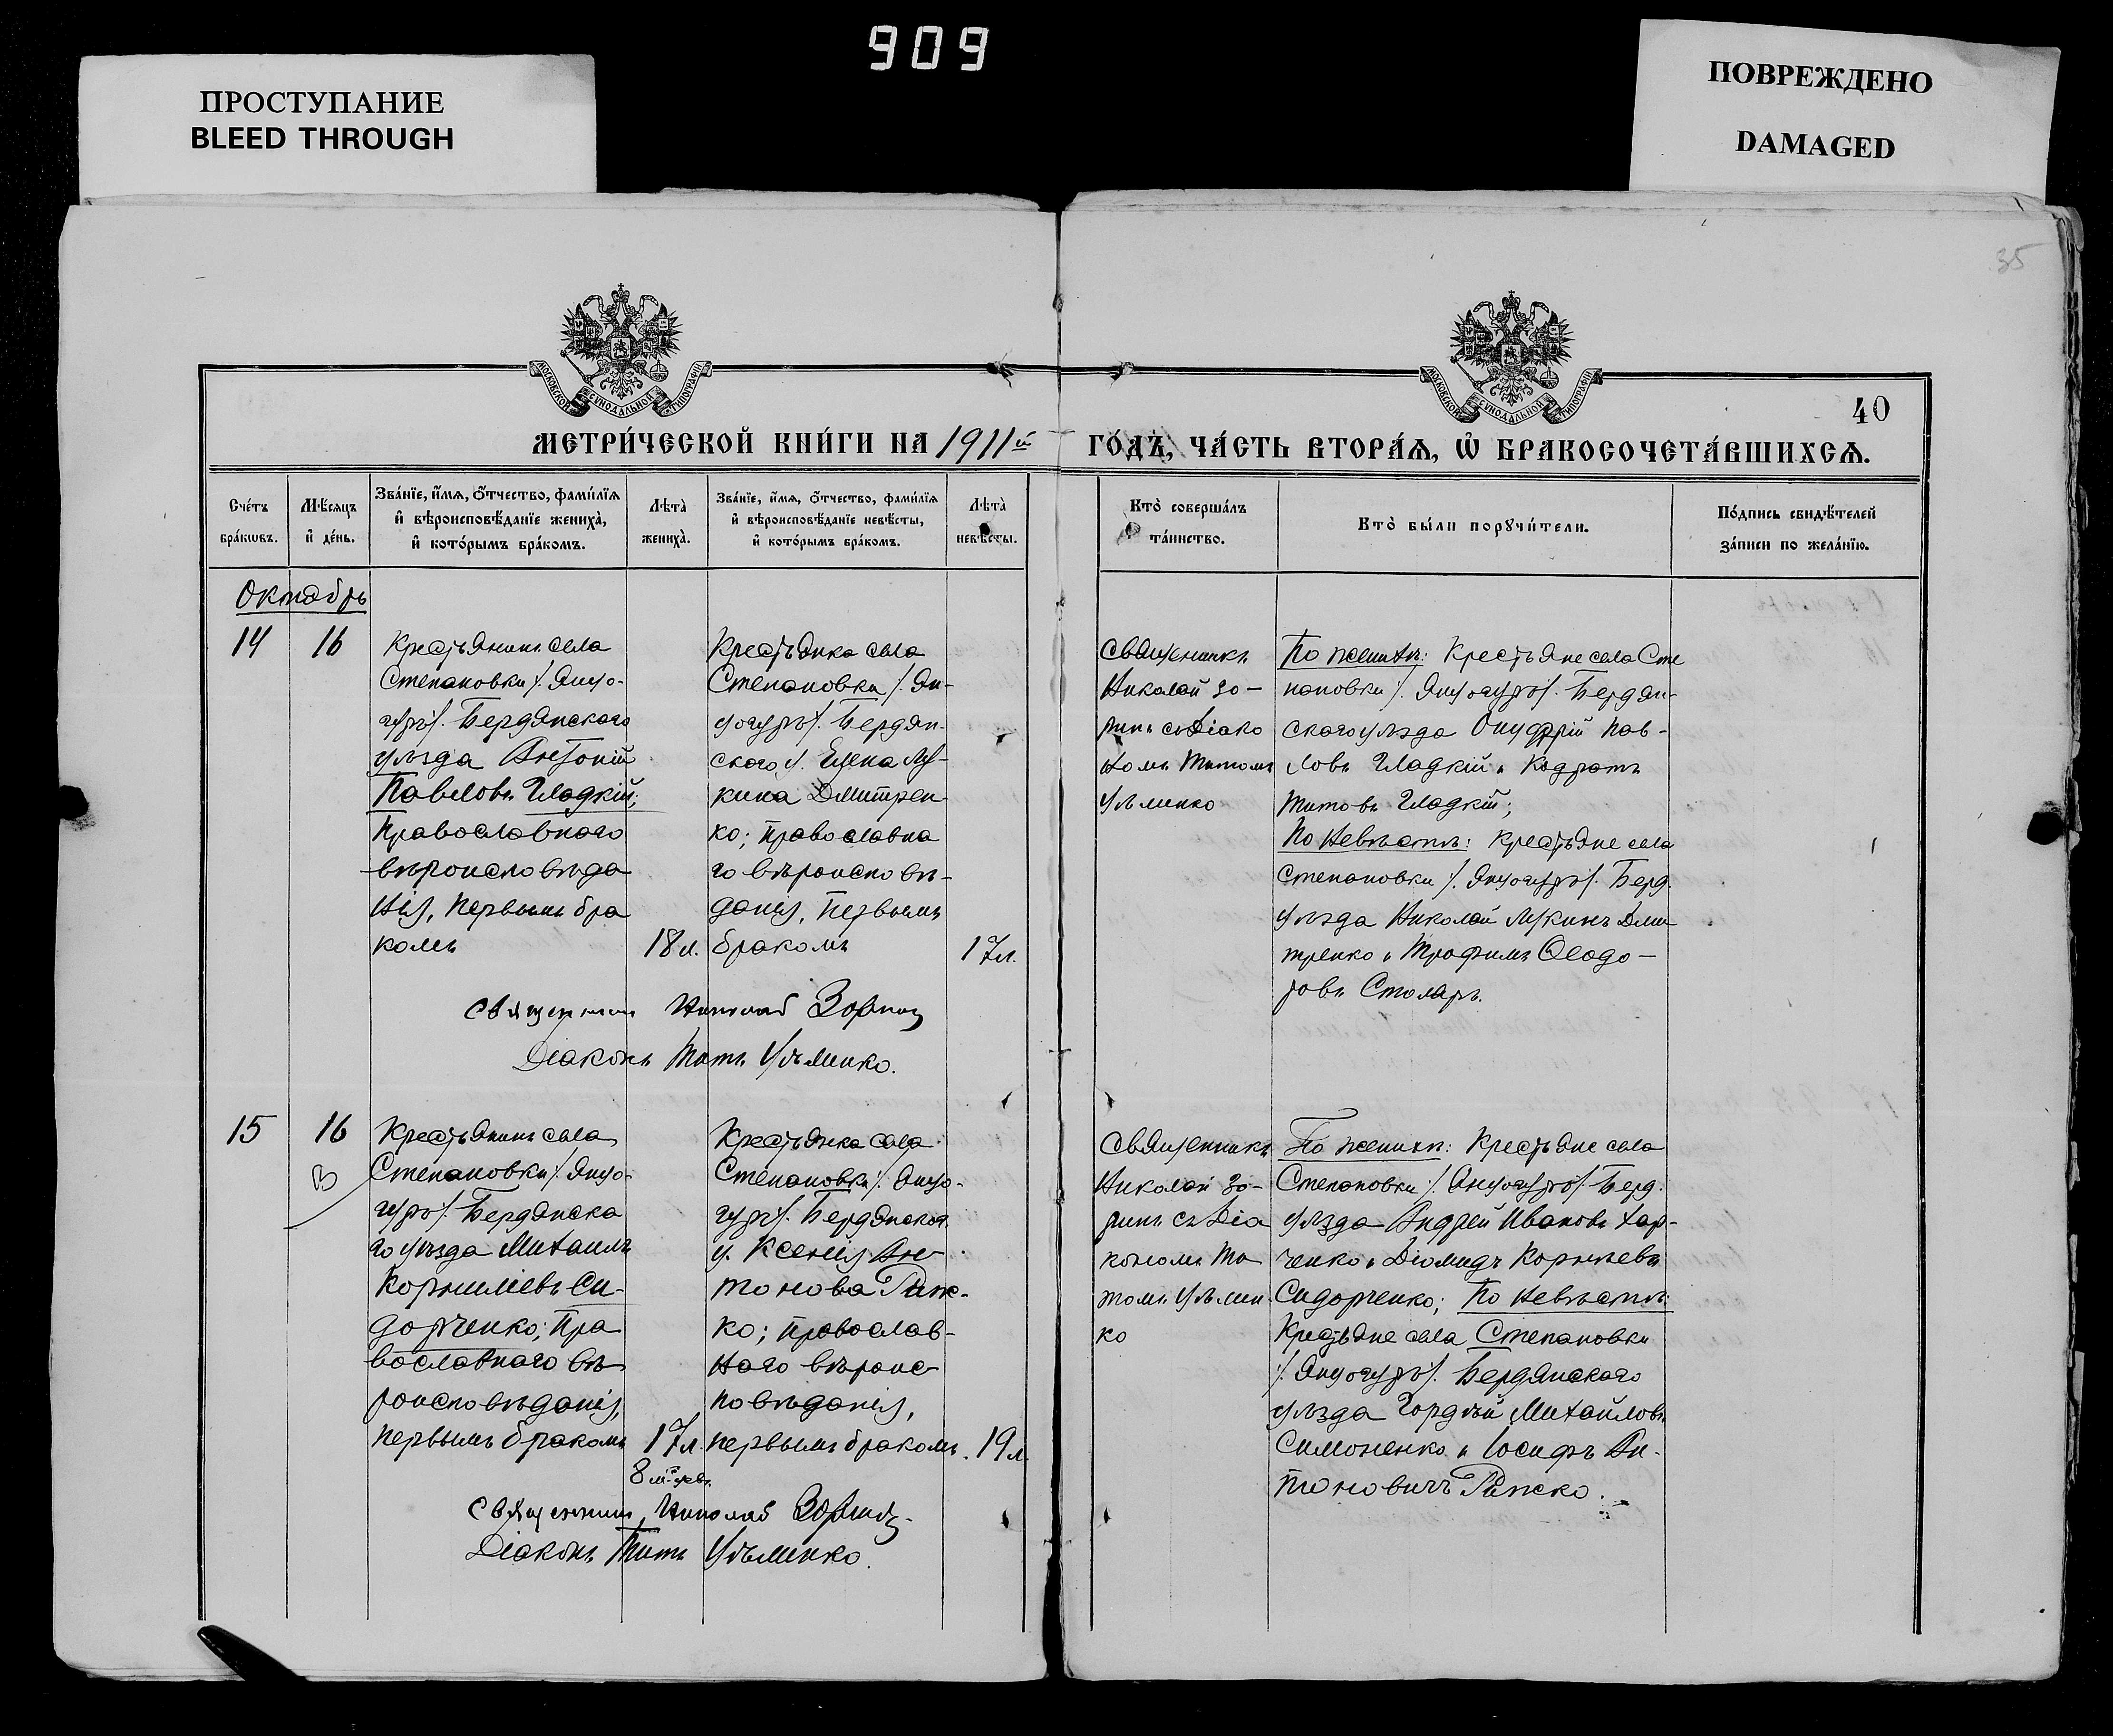 909
ПРОСТУПАНИЕ
BLEED THROUGH
ПОВРЕЖДЕНО
DAMAGED
35
МОСКОВСКОЙ СѴНОДАЛЬНОЙ ТИПОГРАФІИ
МОСКОВСКОЙ СѴНОДАЛЬНОЙ ТИПОГРАФІИ
40
МЕТРИ́ЧЕСКОЙ КНИ́ГИ НА 1911й ГО́ДЪ, ЧА́СТЬ ВТОРА́Ѧ, Ѡ БРАКОСОЧЕТА́ВШИХСѦ.
Сче́тъ
бра́кѡвъ.
Мѣ́сяцъ
и де́нь.
Зва́нїе, и́мѧ, о́тчество, фами́лїѧ
и вѣроисповѣ́данїе жениха̀,
и кото́рымъ бра́комъ.
Лѣта̀
жениха̀.
Зва́нїе, и́мѧ, о́тчество, фами́лїѧ
и вѣроисповѣ́данїе невѣ́сты,
и кото́рымъ бра́комъ.
Лѣта̀
невѣ́сты.
Кто̀ соверша́лъ
та́инство.
Кто̀ бы́ли порꙋчи́тели.
По́дпись свидѣ́телей
за́писи по жела́нїю.
Октябрь
14
16
Крестьянинъ села
Степановки
Бердянскаго
уѣзда Антоній
Павловъ Гладкій;
православнаго
вѣроисповѣда
нія, первымъ бра
комъ
18 л.
Крестьянка села
Степановки
Бердян-
скаго у. Елена Лу-
кина Дмитрен-
ко; православна
го вѣроисповѣ-
данія, первымъ
бракомъ
17 л.
Священникъ
Николай Зо-
ринъ съ Діако
номъ Титомъ
По женихѣ: Крестьяне села Сте
пановки Бердян-
скаго уѣзда Онуфрій Пав-
ловъ Гладкій и Кодратъ
Титовъ Гладкій;
По невѣстѣ: Крестьяне села
Степановки Берд.
уѣзда Николай Лукинъ Дми
тренко и Трофимъ Ѳеодо-
ровъ Столяръ.
Священникъ Николай Зоринъ
Діаконъ Титъ
15
16
В
Крестьянинъ села
Степановки
Бердянска
го уѣзда Михаилъ
Корниліевъ Си-
дорченко; пра
вославнаго вѣ
роисповѣданія,
первымъ бракомъ
17 л.
8 м.
Крестьянка села
Степановки
Бердянскаг.
у. Ксенія Ан-
тонова Риж-
ко; православ-
наго вѣроис
повѣданія,
первымъ бракомъ.
19 л.
Священникъ
Николай Зо-
ринъ съ Діа
кономъ Ти
томъ
ко
По женихѣ: Крестьяне села
Степановки Берд.
уѣзда Андрей Ивановъ Хар-
ченко и Діомидъ Корніевъ
Сидорченко; По невѣстѣ:
Крестьяне села Степановки
Бердянскаго
уѣзда Гордѣй Михайловъ
Симоненко и Іосифъ Ан-
тоновичъ Рижко.
Священникъ Николай Зоринъ
Діаконъ Титъ